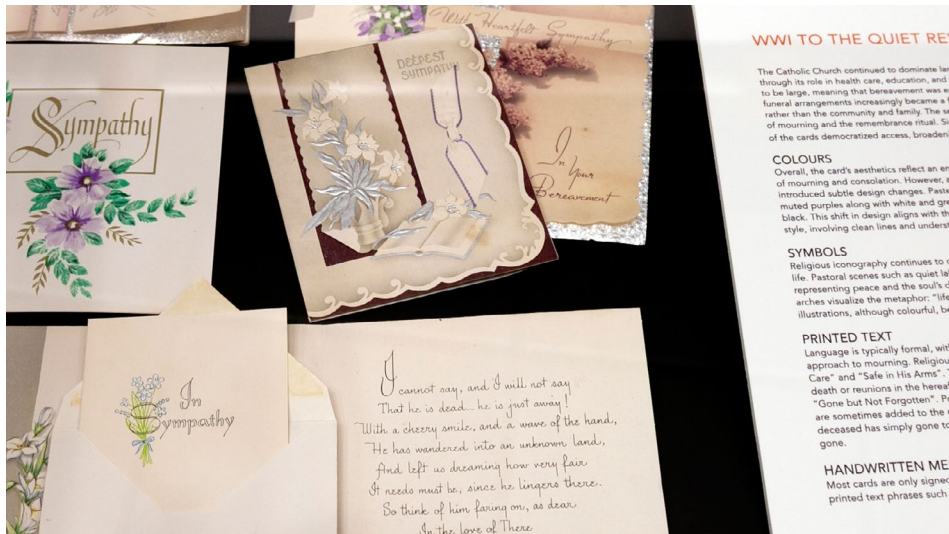 With Heartfelt Sympathy
DEEPEST
SYMPATHY
Sympathy
In
Your
Bereavement
In
Sympathy
I cannot say, and I will not say
That he is dead... he is just away!
With a cheery smile, and a wave of the hand,
He has wandered into an unknown land,
And left us dreaming how very fair
It needs must be, since he lingers there.
So think of him faring on, as dear
In the love of There
WWI TO THE QUIET RE
The Catholic Church continued to dominate
through its role in health care, education, and
to be large, meaning that bereavement was
funeral arrangements increasingly became a
rather than the community and family. The
of mourning and the remembrance ritual.
of the cards democratized access,
COLOURS
Overall, the card's aesthetics reflect an
of mourning and consolation. However,
introduced subtle design changes.
muted purples along with white and
black. This shift in design aligns with
style, involving clean lines and
SYMBOLS
Religious iconography continues to
life. Pastoral scenes such as quiet
representing peace and the soul's
arches visualize the metaphor:
illustrations, although colourful,
PRINTED TEXT
Language is typically formal,
approach to mourning.
Care" and "Safe in His Arms".
death or reunions in the
"Gone but Not Forgotten".
are sometimes added to the
deceased has simply gone
gone.
HANDWRITTEN
Most cards are only
printed text phrases such